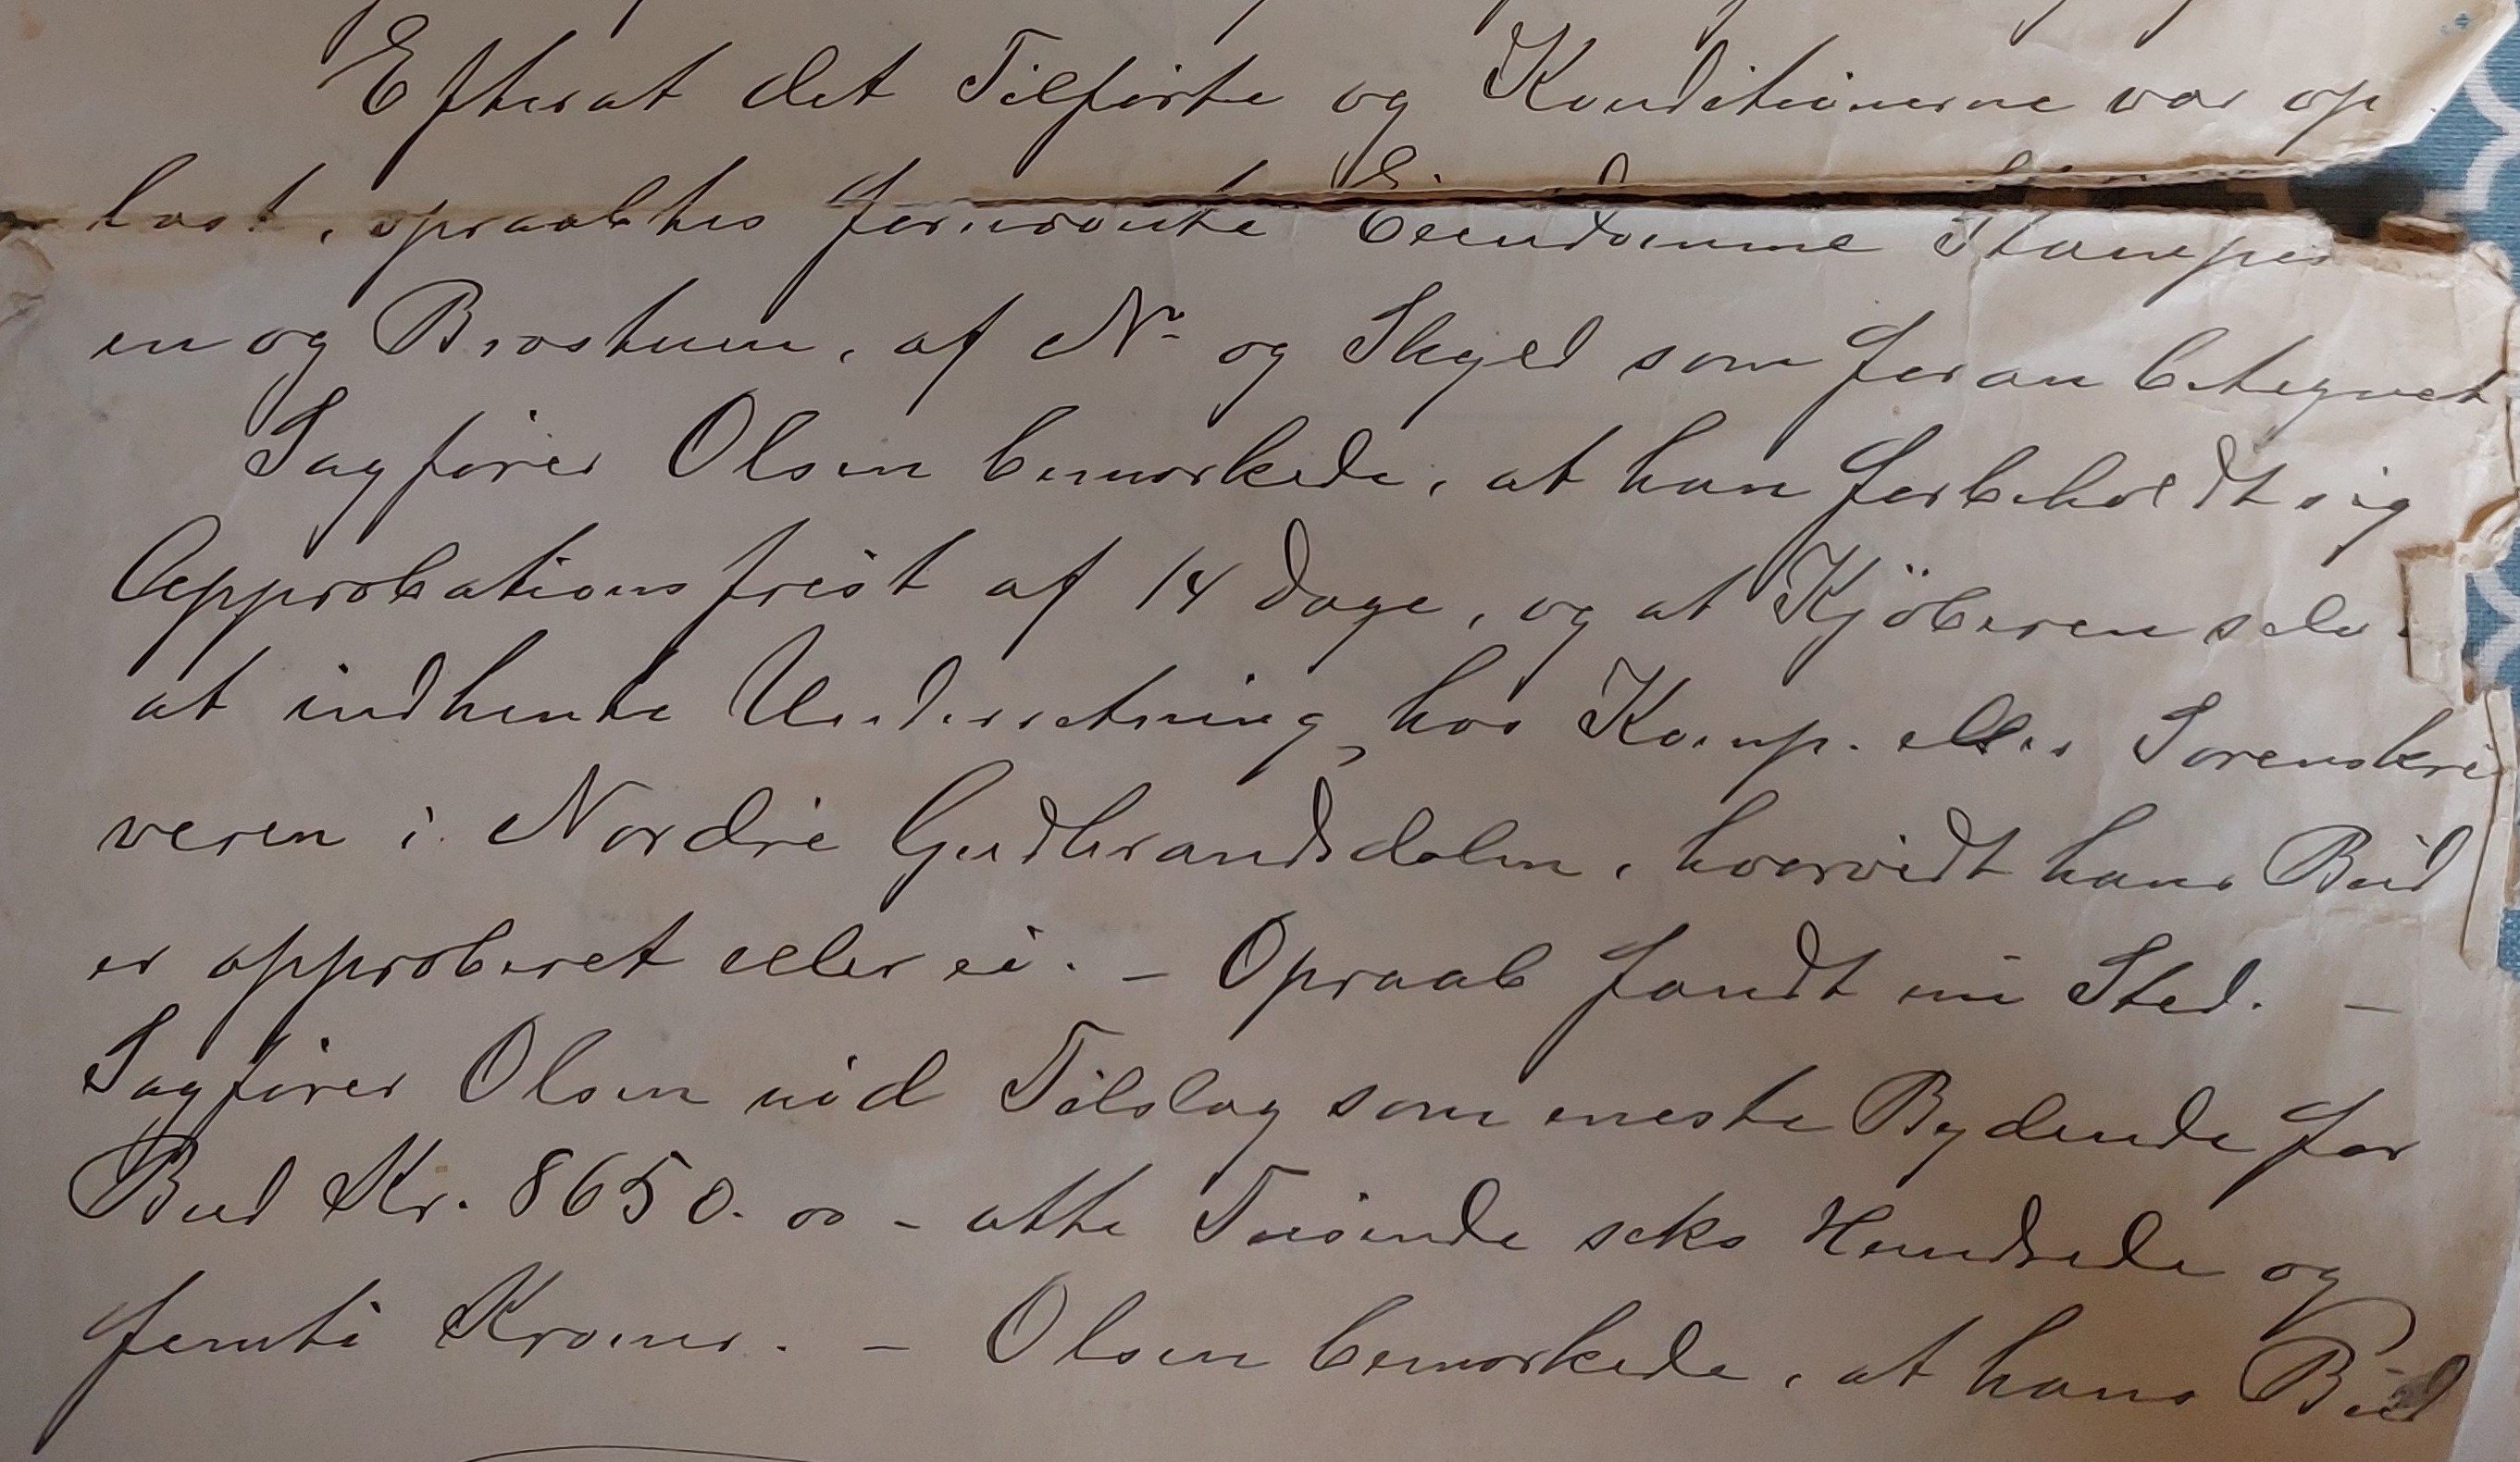 Efterat det Tilførte og Konditionerne var op
læst, opraabtes fornævnte Eiendomme Stampen
en og Brostuen, af No og Skyld som foran betegnet
Sagfører Olsen bemærkede, at han forbeholdt sig
Approbationsfrist af 14 Dage, og at Kjöberen selv
at indhente Underretning hos Komp. eller Sorenskri
veren i Nordre Gudbrandsdalen, hvorvidt hans Bud
er approberet eller ei. – Opraab fandt nu Sted. –
Sagfører Olsen ved Tilslag som eneste Bydende for
Bud Kr. 8650.00 – otte Tusinde seks Hundrede og
femti Kroner. – Olsen bemærkede, at hans Bud